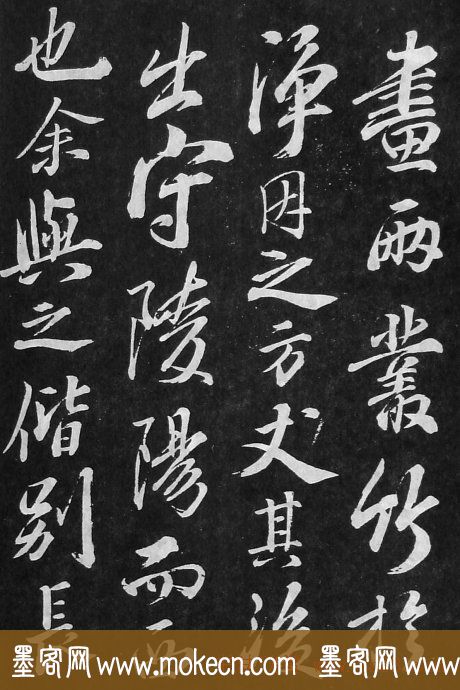 畫兩叢竹於
淨因之方丈其後
出守陵陽而西
也余與之偕別長
墨客网 www.mokecn.com 墨客网 www.mokecn.com